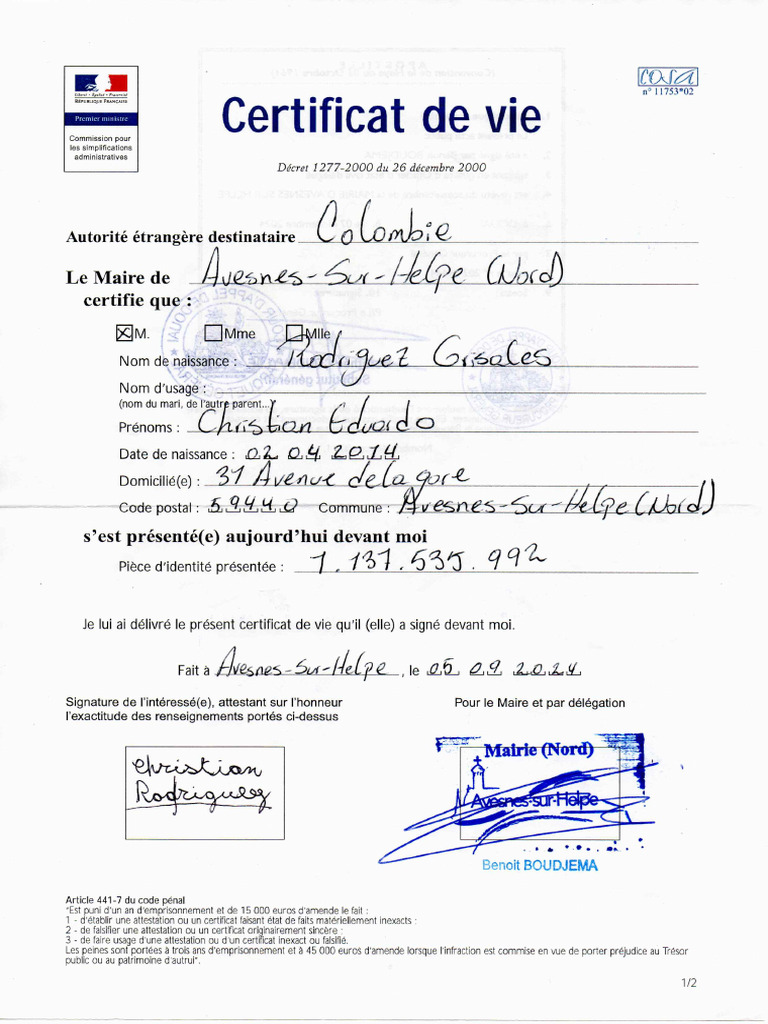 Liberté • Égalité • Fraternité
RÉPUBLIQUE FRANÇAISE
Premier ministre
Commission pour
les simplifications
administratives
cerfa
n° 11753*02
Certificat de vie
Décret 1277-2000 du 26 décembre 2000
Autorité étrangère destinataire Colombie
Le Maire de Avesnes-Sur-Helpe (Nord)
certifie que :
M. Mme Mlle
Nom de naissance : Rodriguez Grisales
Nom d'usage :
(nom du mari, de l'autre parent...)
Prénoms : Christian Eduardo
Date de naissance : 02 04 2014
Domicilié(e) : 31 Avenue de la gare
Code postal : 59440 Commune : Avesnes-Sur-Helpe (Nord)
s'est présenté(e) aujourd'hui devant moi
Pièce d'identité présentée : 1.137.535.992
Je lui ai délivré le présent certificat de vie qu'il (elle) a signé devant moi.
Fait à Avesnes-Sur-Helpe, le 05 09 2024
Signature de l'intéressé(e), attestant sur l'honneur
l'exactitude des renseignements portés ci-dessus
Pour le Maire et par délégation
Christian
Rodriguez
Mairie (Nord)
Avesnes-sur-Helpe
Benoit BOUDJEMA
Article 441-7 du code pénal
"Est puni d'un an d'emprisonnement et de 15 000 euros d'amende le fait :
1 - d'établir une attestation ou un certificat faisant état de faits matériellement inexacts :
2 - de falsifier une attestation ou un certificat originairement sincère :
3 - de faire usage d'une attestation ou d'un certificat inexact ou falsifié.
Les peines sont portées à trois ans d'emprisonnement et à 45 000 euros d'amende lorsque l'infraction est commise en vue de porter préjudice au Trésor
public ou au patrimoine d'autrui".
1/2